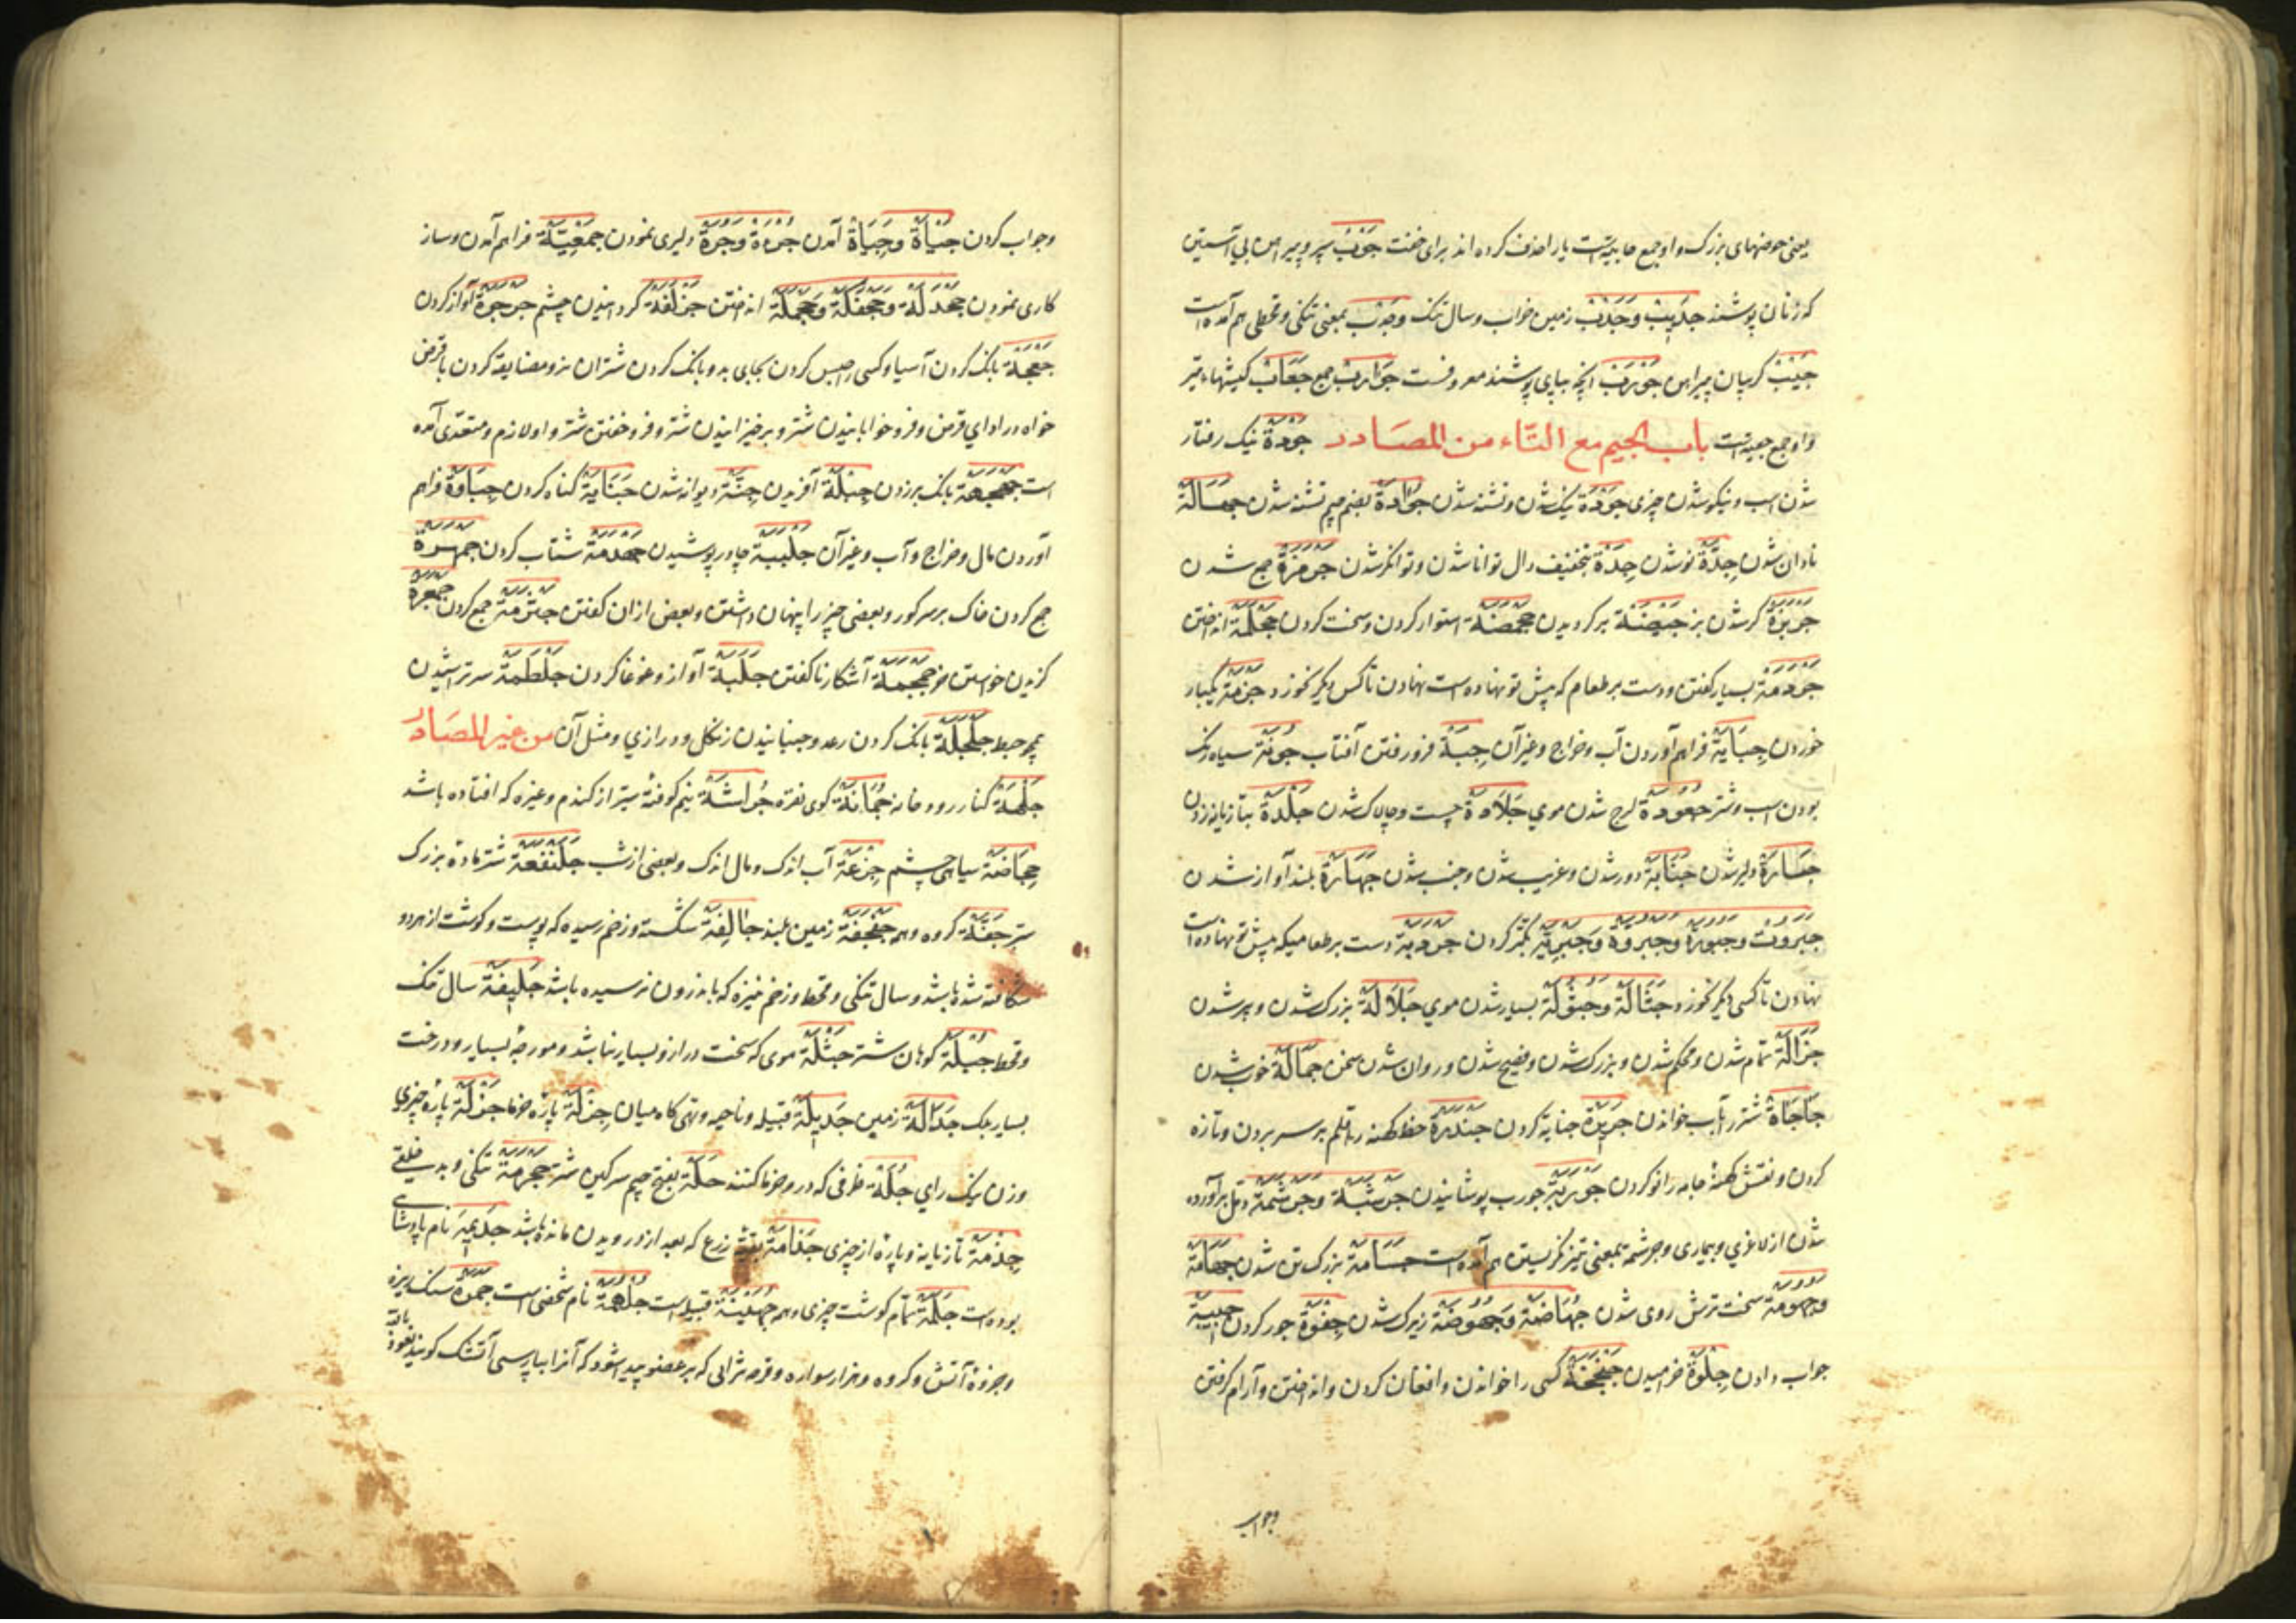 یعنی حوضهای بزرگ و او جمع جابیة است یا را حذف کرده اند برای خفت جَوْبْ سپر و پیراهن بی آستین
که زنان پوشند جَدِیْبْ وَجَدْبْ زمین خراب و سال تنک وجَدْب بمعنی تنکی و قحطی هم آمده است
جَیْبْ کریبان پیراهن جَوْرَبْ آنچه بپای پوشند معروفست جَوَارِبْ جمع جِعَابْ کیشهاء تیر
و او جمع جعبه است باب الجیم مع التاء من المصادر جُوْدَةْ نیک رفتار
شدن اسب و نیکو شدن چیزی جَوْدَةْ نیک شدن و تشنه شدن جُوَادَةْ بضم جیم تشنه شدن جَهَالَةْ
نادان شدن جِدَّةْ نو شدن جِدَةْ بتخفیف دال توانا شدن و توانکر شدن جَرْمَزَةْ جمع شدن
جَرْبَزَةْ کربز شدن جَیْضَةْ برکردیدن استوار کردن و سخت کردن انداختن
جَرْدَمَةْ بسیار کفتن و دست بر طعام که پیش تو نهاده است نهادن تا کس دیکر نخورد جَزْمَةْ یکبار
خوردن جِبَایَةْ فراهم آوردن آب و خراج و غیر آن فرو رفتن آفتاب جُوْنَةْ سیاه رنک
بودن اسب و شتر جُعُوْدَةْ شدن موی جَلَادَةْ چست و چالاک شدن جَلْدَةْ بتازیانه زدن
جَسَارَةْ دلیر شدن جَنَابَةْ دور شدن و غریب شدن و جنب شدن جَهَارَةْ بلند آواز شدن
جَبَرُوْت وَجَبُوْرَةْ وَجَبَرُوَّةْ وَجَبَرِیَّةْ تکبر کردن جَرْدَبَةْ دست بر طعامیکه پیش تو نهاده است
نهادن تا کسی دیکر نخورد جَثَالَةْ وَجُثُوْلَةْ بسیار شدن موی جَلَالَةْ بزرک شدن و پیر شدن
جَزَالَةْ تمام شدن و محکم شدن و بزرک شدن و فصیح شدن و روان شدن سخن جَمَالَةْ خوب شدن
جَاجَاةْ شتر را بآب خواندن جَرِیْرَةْ جنایة کردن جَنْدَرَةْ خط کهنه را قلم بر سر بردن و تازه
کردن و نقش کهنهٔ جامه را نو کردن جَوْرَبَةْ جورب پوشانیدن وَجَرْشَمَةْ
شدن از لاغری و بیماری و جرشمه بمعنی تیز نکریستن هم آمده است جَسَامَةْ بزرک تن شدن جَهَامَةْ
وَجُهُوْمَةْ سخت ترش روی شدن جُهَاضَةْ وَجُهُوْضَةْ زیرک شدن جَفْوَةْ جور کردن
جواب دادن جِلْوَةْ خرامیدن جَخْجَخَةْ کسی را خواندن و افغان کردن و انداختن و آرام کرفتن
وجواب
وجواب کردن جَیْأَةْ وَجِیَاةْ آمدن جُرْءَةْ وَجُرَةْ دلیری نمودن فراهم آمدن و ساز
کاری نمودن انداختن کردانیدن چشم جَرْجَرَةْ آواز کردن
جَعْجَعَةْ بانک کردن آسیا و کسی را حبس کردن بجای بد و بانک کردن شتران نر و مضایقه کردن با قرض
خواه در ادای قرض و فرو خوابانیدن شتر و برخیزانیدن شتر و فرو خفتن شتر و او لازم و متعدی آمده
است جَهْجَهَةْ بانک برزدن جِبِلَّةْ آفریدن جِنَّةْ دیوانه شدن جِنَایَةْ کناه کردن جِبَاوَةْ فراهم
آوردن مال و خراج و آب و غیر آن جَلْبَبَةْ چادر پوشیدن شتاب کردن جَمْهَرَةْ
جمع کردن خاک بر سر کور و بعضی چیز را پنهان داشتن و بعض از ان کفتن جَرْثَمَةْ جمع کردن جَمْعَرَةْ
کزیدن خواستن خر جَمْجَمَةْ آشکار نا کفتن جَلَبَةْ آواز و غوغا کردن جَلْطَمَةْ سر تراشیدن
جَلْجَلَةْ بانک کردن رعد و جنبانیدن زنکل و درازی و مثل آن من غیر المصادر
جَلْهَةْ کنار رودخانه جُمَانَةْ کوی نقره نیم کوفته ستبر از کندم و غیره که افتاده باشد
سیاهی چشم جِزْعَةْ آب اندک و مال اندک و بعضی از شب جَلَنْفَعَةْ شتر ماده بزرک
ستبر جَفَّةْ کروه و هم جَفْجَفَةْ زمین بلند جَالِفَةْ شکسته و زخم رسیده که پوست و کوشت از هر دو
شکافته شده باشد و سال تنکی و قحط و زخم نیزه که باندرون نرسیده باشد جَلِیْفَةْ سال تنک
و قحط کوهان شتر جَثْلَةْ موی که سخت دراز و بسیار نباشد و مورچهٔ بسیار و درخت
بسیار برک جَدَالَةْ زمین جَدِیْلَةْ قبیله و ناحیه و تهی کاه میان جِزْلَةْ پارهٔ خرما جَزْلَةْ پارهٔ چیزی
و زن نیک رای جُلَّةْ ظرفی که در و خرما کنند جَلَّةْ بفتح جیم سرکین شتر تنکی و بد خلقی
جِذْمَةْ تازیانه و پارهٔ از چیزی جُذَامَةْ زرع که بعد از درویدن مانده باشد جَذِیْمَةْ نام پادشاهی
بوده است جَلَمَةْ تمام کوشت چیزی جُهَیْنَةْ قبیله است جُلْهُمَةْ نام شخصی است جَمْرَةْ سنک ریزه
و جزوهٔ آتش و کروه و هزار سواره و قرصه که بر عضو پیدا شود که آنرا بپارسی آتشک کویند نعوذ
بالله